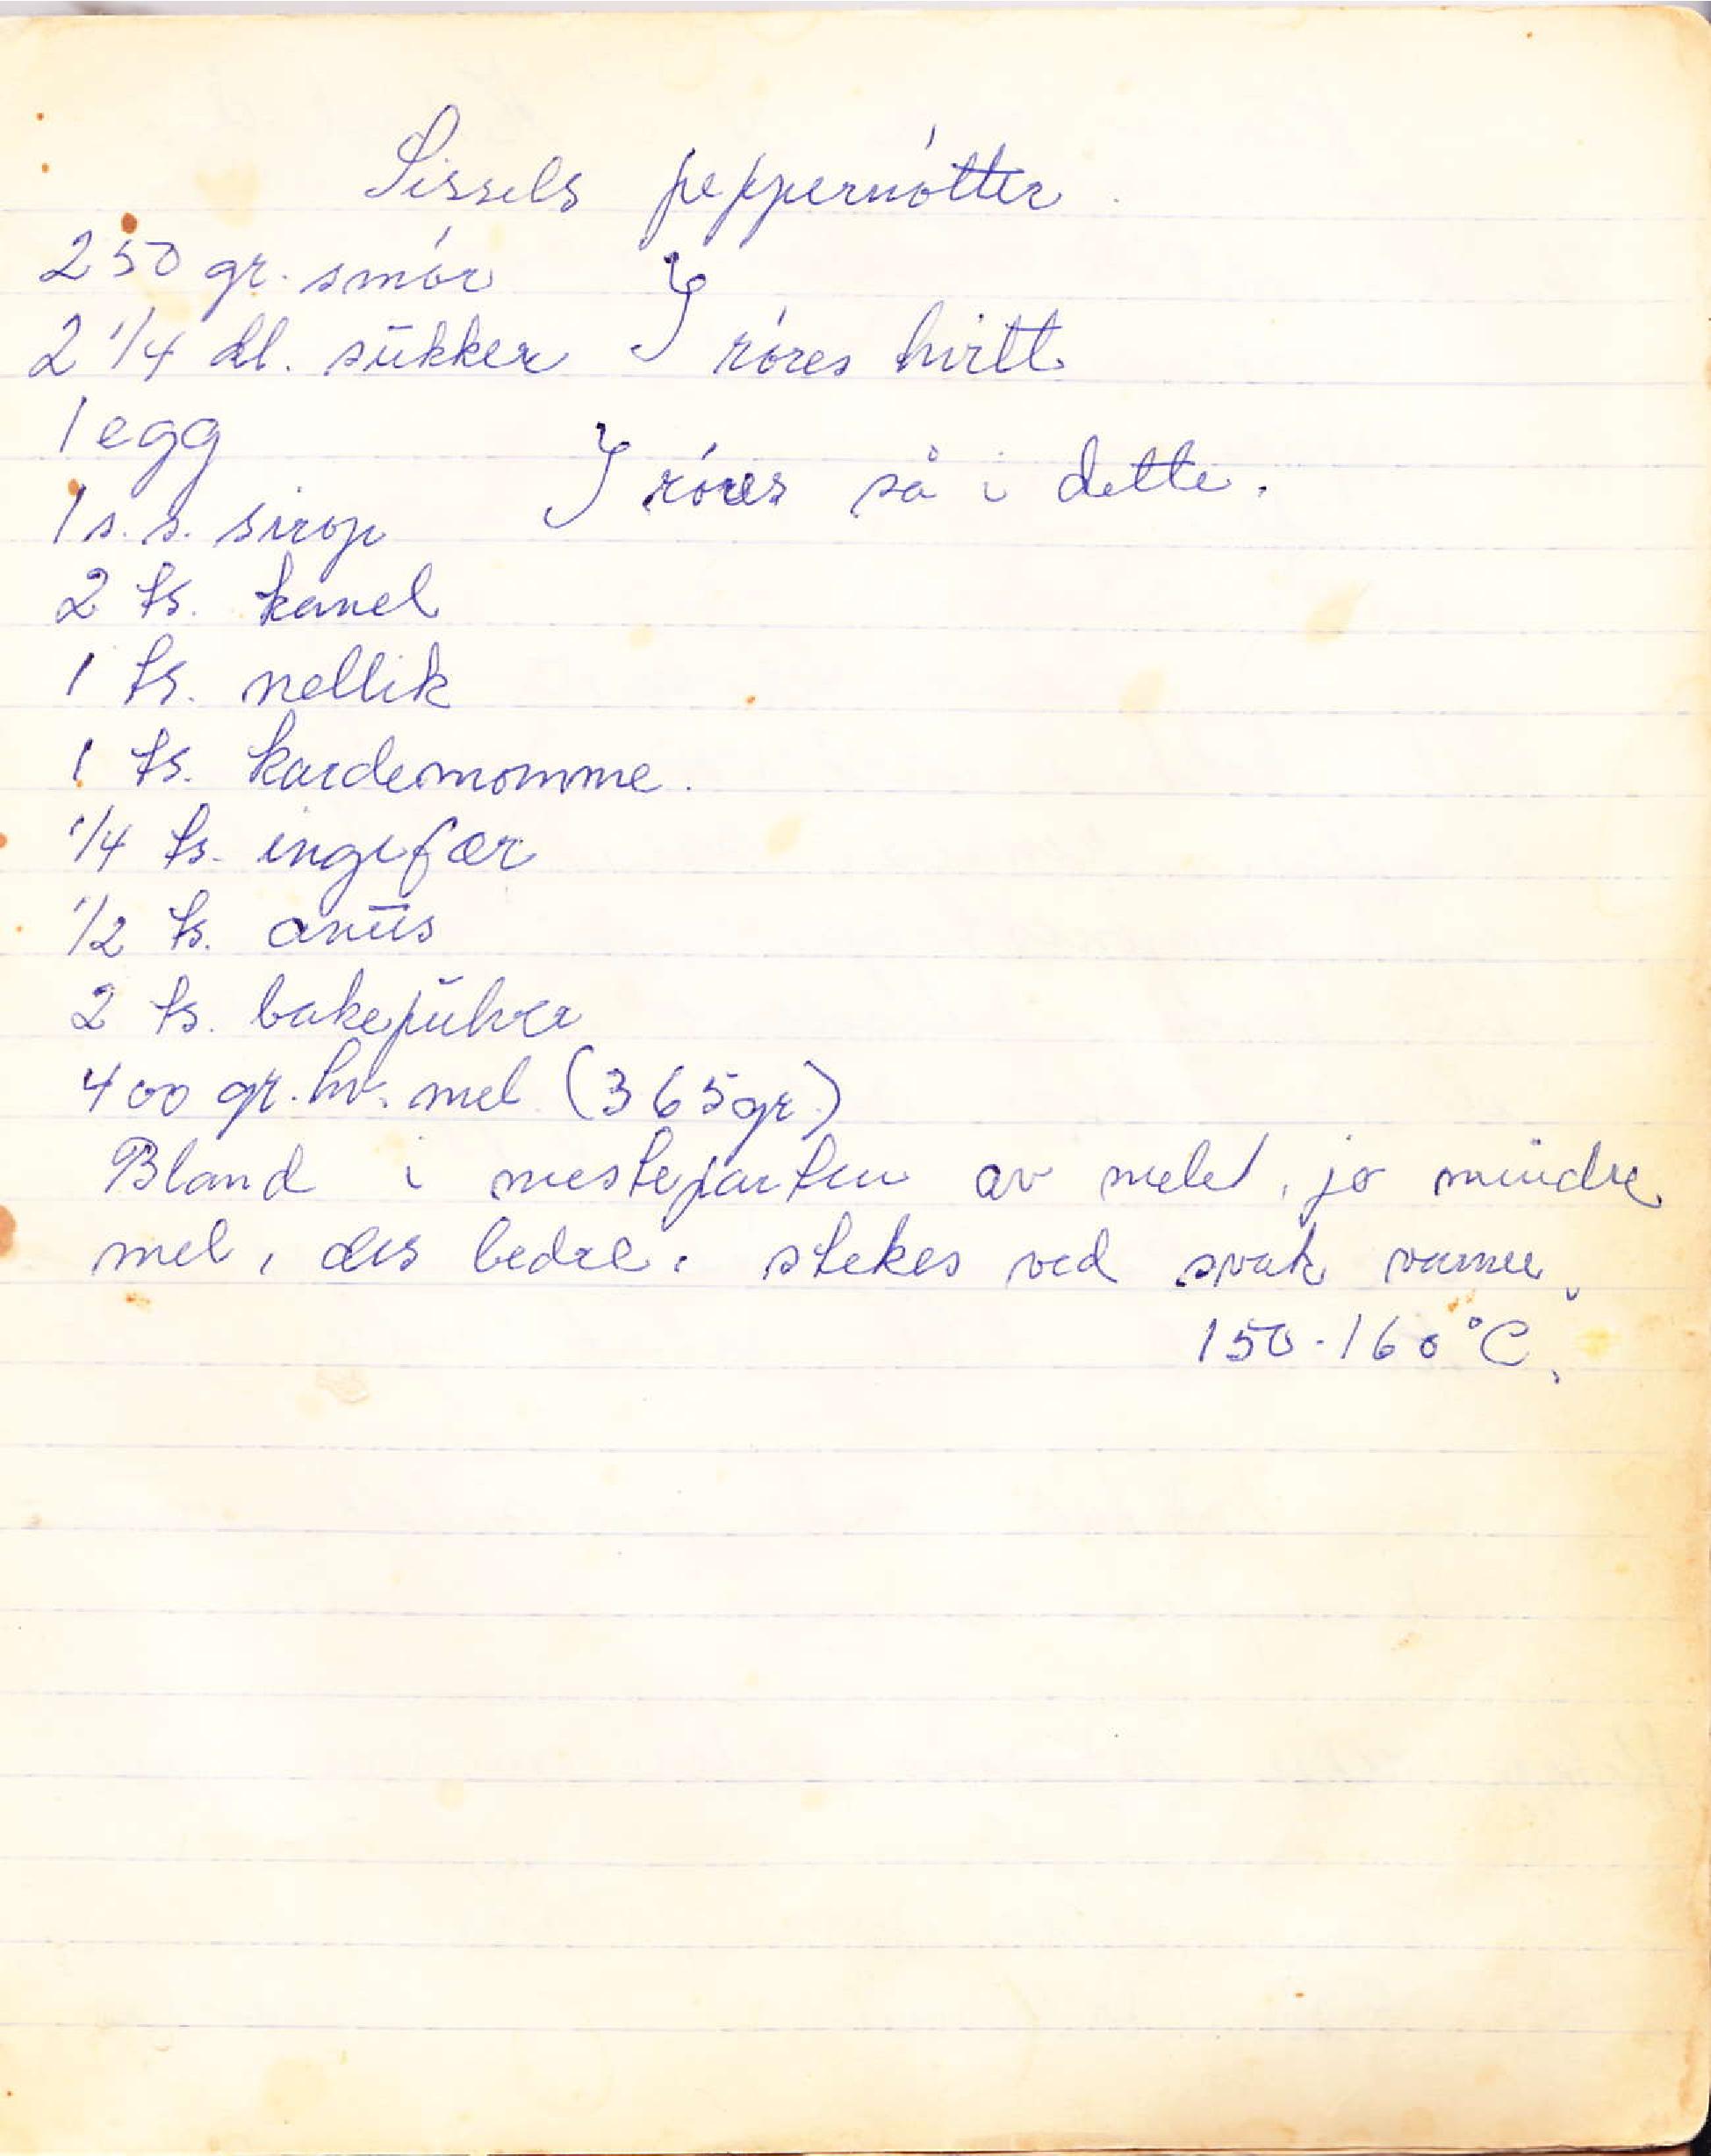 Sissels peppernøtter.
250 gr. smør
2 1/4 dl. sukker } røres hvitt
1 egg
} røres så i dette.
1 s.s. sirop
2 ts. kanel
1 ts. nellik
1 ts. kardemomme.
1/4 ts. ingefær
1/2 ts. aniis
2 ts. bakepulver
400 gr. hv. mel (365gr)
Bland i mesteparten av melet, jo mindre
mel, des bedre. stekes ved svak varme.
150-160°C.